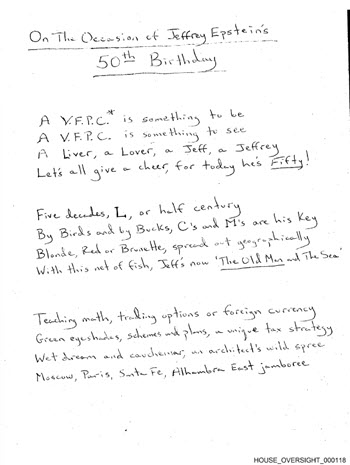 On The Occasion of Jeffrey Epstein's
50th Birthday
A V.F.P.C.* is something to be
A V.F.P.C. is something to see
A Liver, a Lover, a Jeff, a Jeffrey
Let's all give a cheer, for today he's Fifty!
Five decades, L, or half century
By Birds and by Bucks, C's and M's are his Key
Blonde, Red or Brunette, spread out geographically
With this net of fish, Jeff's now 'The Old Man and The Sea'
Teaching math, trading options or foreign currency
Green eyeshades, schemes and plans, a unique tax strategy
Wet dream and cauchemar, an architect's wild spree
Moscow, Paris, Santa Fe, Alhambra East jamboree
HOUSE_OVERSIGHT_000118